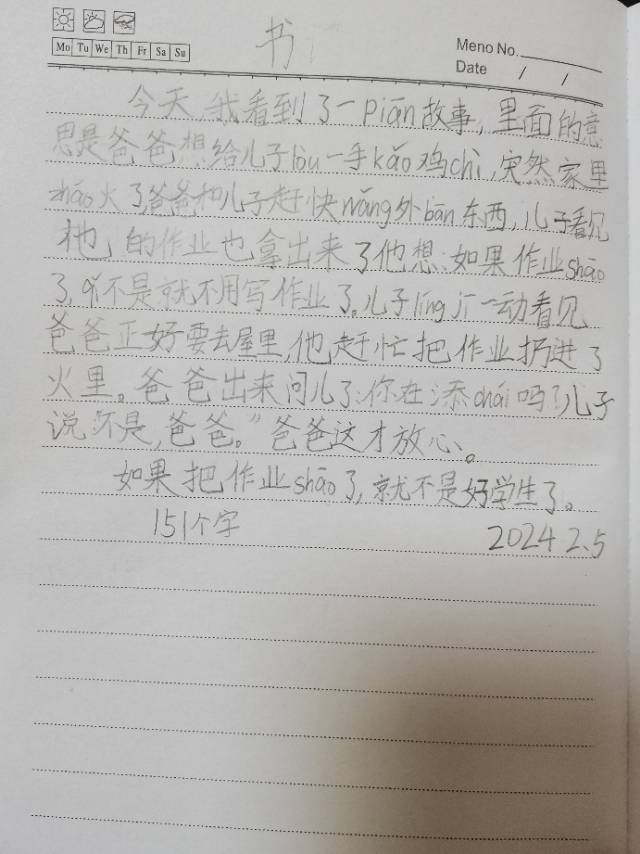 书
Mo Tu We Th Fr Sa Su
Meno No.
Date / /
今天,我看到了一piān故事,里面的意
思是爸爸想给儿子lòu一手kǎo鸡chì,突然家里
zháo火了,爸爸和儿子赶快wǎng外bān东西,儿子看见
他的作业也拿出来了他想:如果作业shāo
了,不是就不用写作业了。儿子líng jī一动看见
爸爸正好要去屋里,他赶忙把作业扔进了
火里。爸爸出来问儿子:你在添chái吗?儿子
说:"不是,爸爸。"爸爸这才放心。
如果把作业shāo了,就不是好学生了。
151个字
2024 2.5